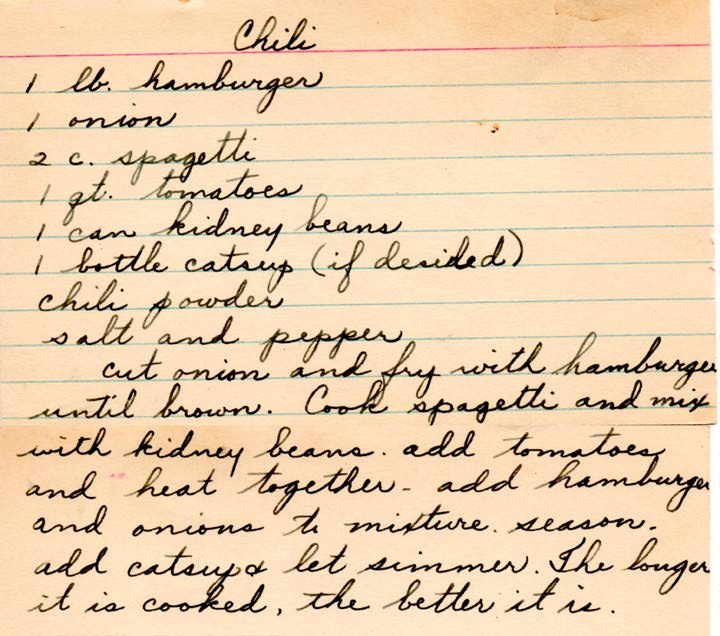 Chili
1 lb. hamburger
1 onion
2 c. spagetti
1 qt. tomatoes
1 can kidney beans
1 bottle catsup (if desided)
chili powder
salt and pepper
cut onion and fry with hamburger
until brown. Cook spagetti and mix
with kidney beans. add tomatoes
and heat together - add hamburger
and onions to mixture. season.
add catsup & let simmer. The longer
it is cooked, the better it is.